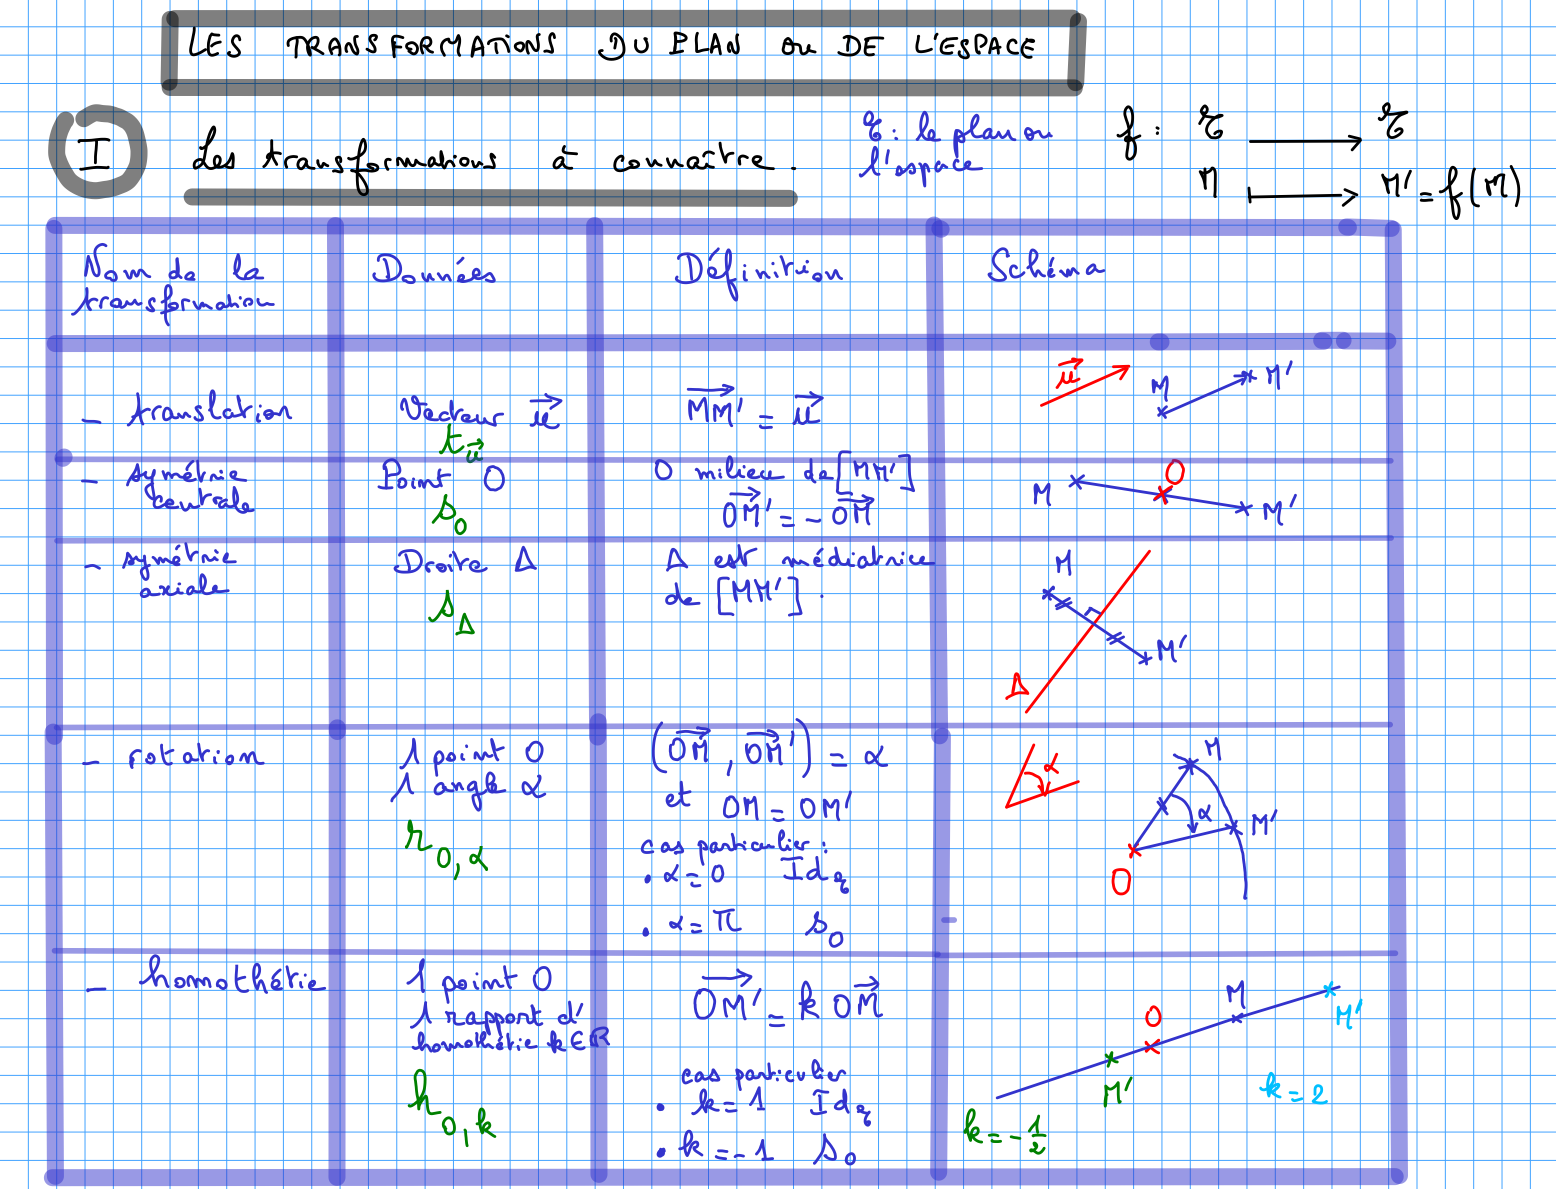 LES TRANSFORMATIONS DU PLAN ou DE L'ESPACE
I Les transformations à connaître.
ℰ : le plan ou
l'espace
f : ℰ ⟶ ℰ
M ⟼ M' = f(M)
Nom de la
transformation
Données
Définition
Schéma
- translation
Vecteur u⃗
t_u⃗
MM'⃗ = u⃗
u⃗
M
M'
- symétrie
centrale
Point O
s_O
O milieu de [MM']
OM'⃗ = - OM⃗
M
O
M'
- symétrie
axiale
Droite Δ
s_Δ
Δ est médiatrice
de [MM'].
M
M'
Δ
- rotation
1 point O
1 angle α
r_O,α
(OM⃗, OM'⃗) = α
et OM = OM'
cas particulier :
• α = 0 Id_ℰ
• α = π s_O
α
M
α
M'
O
- homothétie
1 point O
1 rapport d'
homothétie k ∈ ℝ
h_O,k
OM'⃗ = k OM⃗
cas particulier
• k = 1 Id_ℰ
• k = -1 s_O
M
M'
O
M'
k = 2
k = -1/2